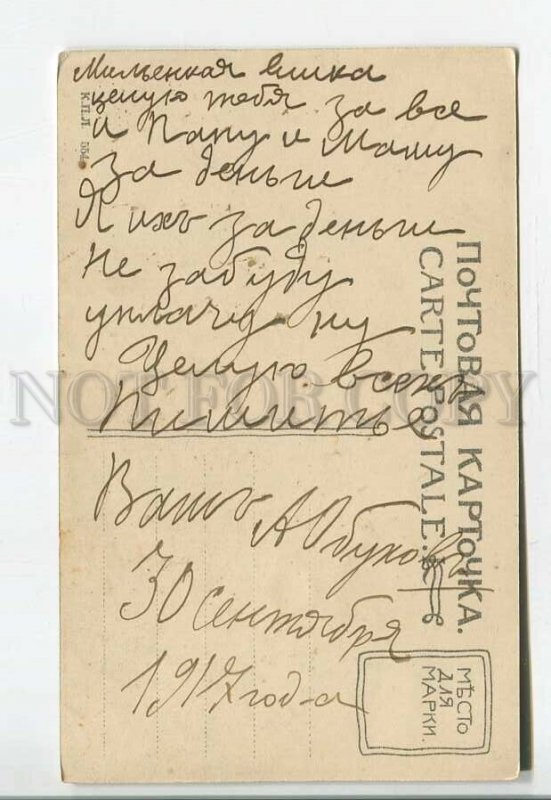 Миленькая
целую тебя за все
и Папу и Маму
за деньги
Я ихъ за деньги
Не забуду
уплачу ну
Целую всехъ
Пишите
Вашъ А Обуховъ
30 сентября
1917 год-а
ПОЧТОВАЯ КАРТОЧКА.
CARTE POSTALE.
МѢСТО
ДЛЯ
МАРКИ.
К.П.Л.
NOT FOR COPY